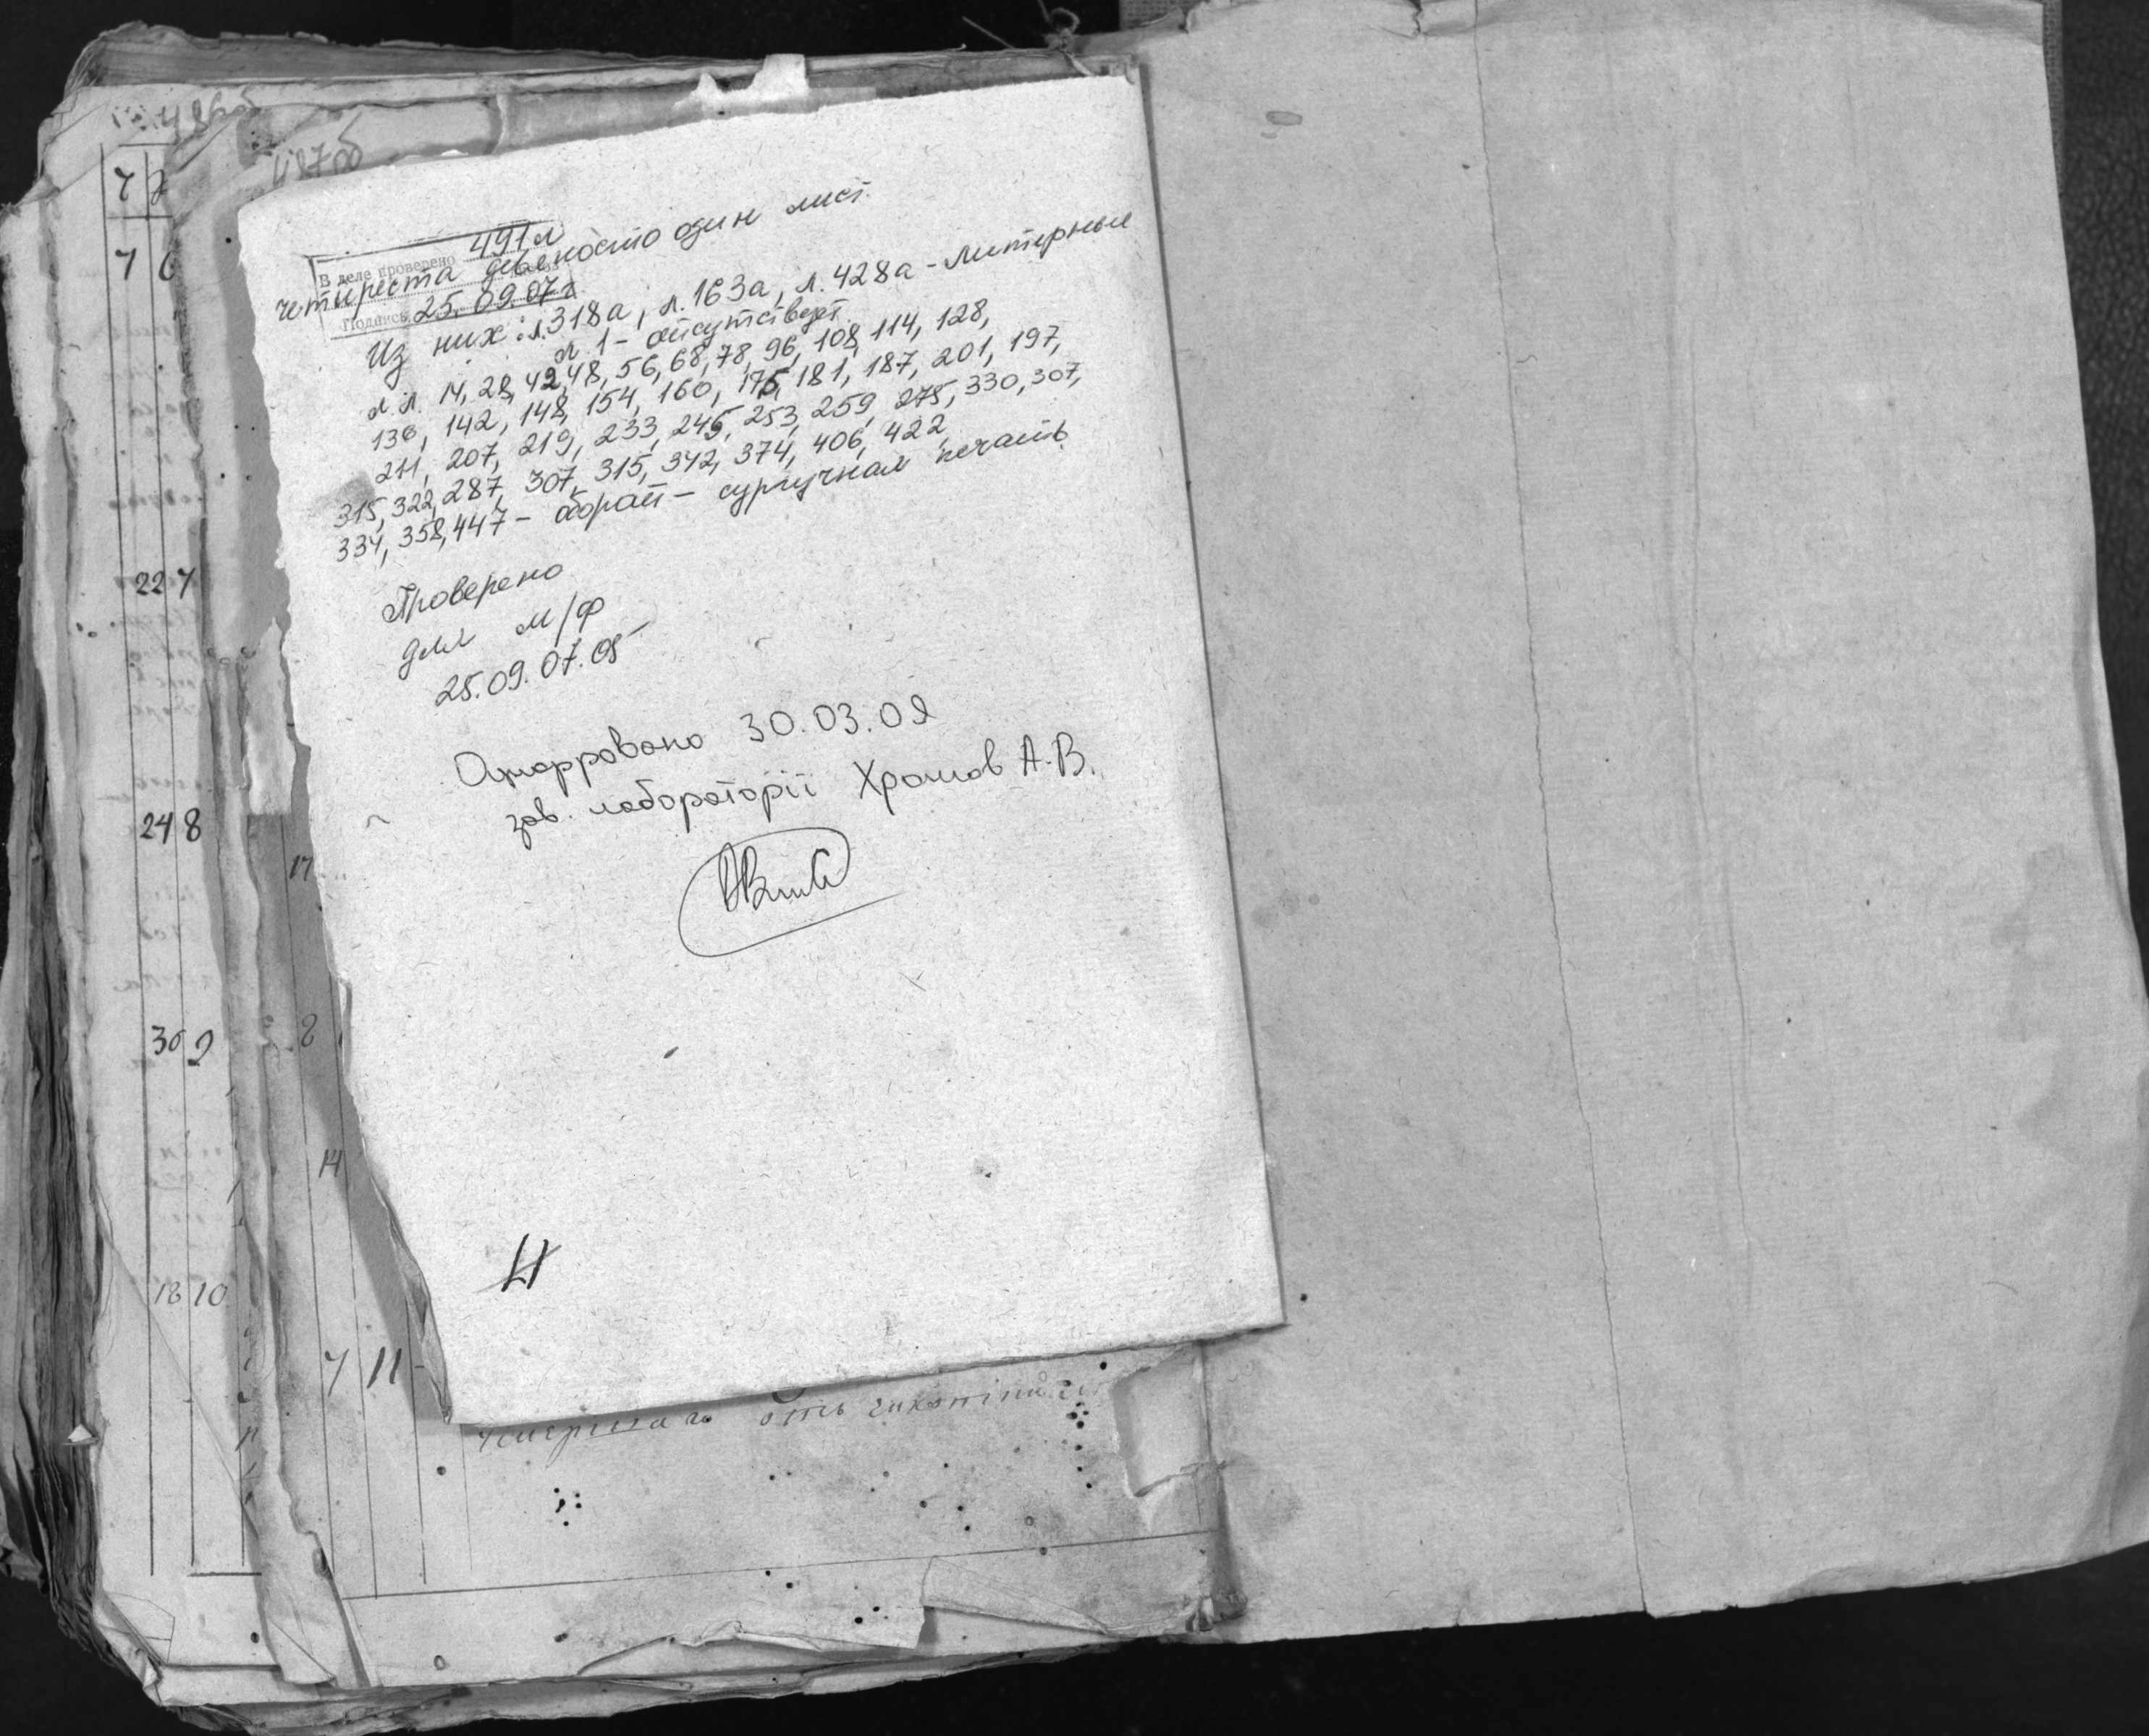 486об
487об
7
7 6
22 7
24 8
30 9
18 10
17
8
14
7 11
В деле проверено 491 л
четыреста девяносто один лист.
Подпись 25.09.07 г
Из них: л.318а, л.163а, л.428а - литерные
л. 1 - отсутствует.
л.л. 14, 28, 42, 48, 56, 68, 78, 96, 108, 114, 128,
136, 142, 148, 154, 160, 175, 181, 187, 201, 197,
211, 207, 219, 233, 245, 253, 259, 275, 330, 307,
315, 322, 287, 307, 315, 342, 374, 406, 422,
334, 358, 447 - оборот - сургучная печать
Проверено
для м/ф
25.09.07.
30.03.09
зав. лабораторії Храмов А.В.
отъ